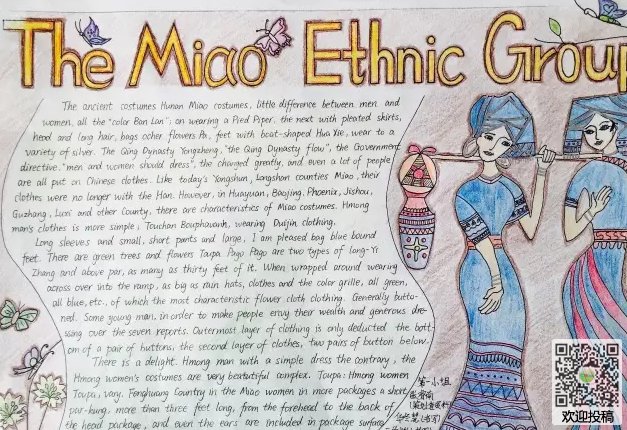 The Miao Ethnic Group
The ancient costumes Hunan Miao costumes, little difference between men and
women, all the "color Ban Lan"; on wearing a Pied Piper, the next with pleated skirts,
head and long hair, bags ocher flowers Pa, feet with boat-shaped Hua Xie, wear to a
variety of silver. The Qing Dynasty Yongzheng, "the Qing Dynasty flow", the Government
directive "men and women should dress", the changed greatly, and even a lot of people
are all put on Chinese clothes. Like today's Yongshun, Longshan counties Miao, their
clothes were no longer with the Han. However, in Huayuan, Baojing, Phoenix, Jishou,
Guzhang, Luxi and other County, there are characteristics of Miao costumes. Hmong
man's clothes is more simple, Touchan Bouphavanh, wearing Duijin clothing.
Long sleeves and small, short pants and large, I am pleased bag blue bound
feet. There are green trees and flowers Taupa Pogo Pago are two types of long-Yi
Zhang and above par, as many as thirty feet of it. When wrapped around wearing
across over into the ramp, as big as rain hats, clothes and the color grille, all green,
all blue, etc., of which the most characteristic flower cloth clothing. Generally butto-
ned. Some young man, in order to make people envy their wealth and generous dre-
ssing over the seven reports. Outermost layer of clothing is only deducted the bott-
om of a pair of buttons, the second layer of clothes, two pairs of button below.
There is a delight. Hmong man with a simple dress the contrary, the
Hmong women's costumes are very beatutiful complex. Toupa: Hmong women
Toupa, vary. Fenghuang Country in the Miao women in more packages a short
par-kung, more than three feet long, from the forehead to the back of
the head package, and even the ears are included in package surface
第一小组
欢迎投稿